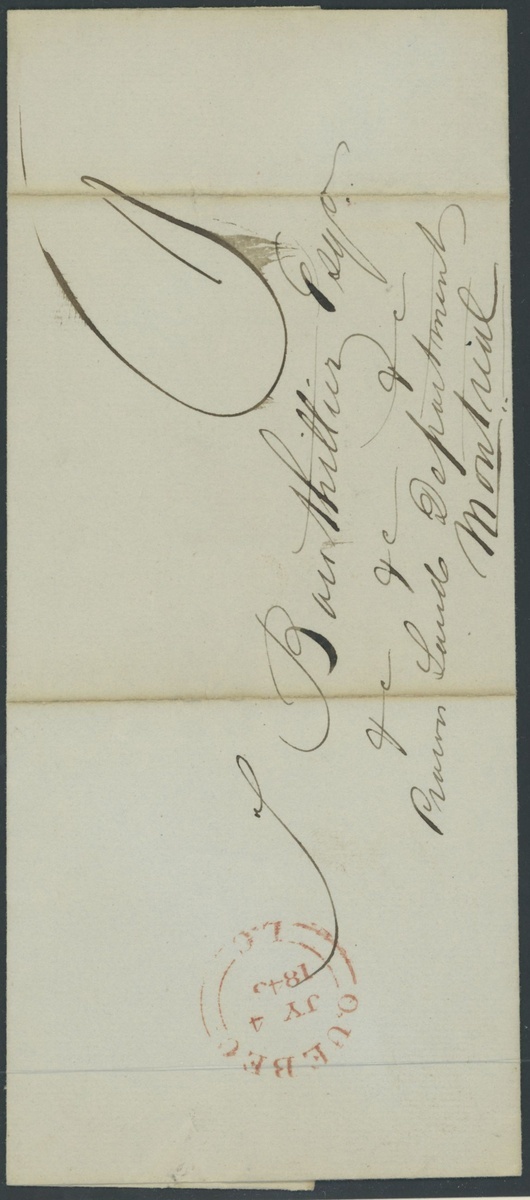 T Bouthillier Esqr.
&c &c &c
Crown Land Department
Montreal
QUEBEC
JY 4
1845
L.C